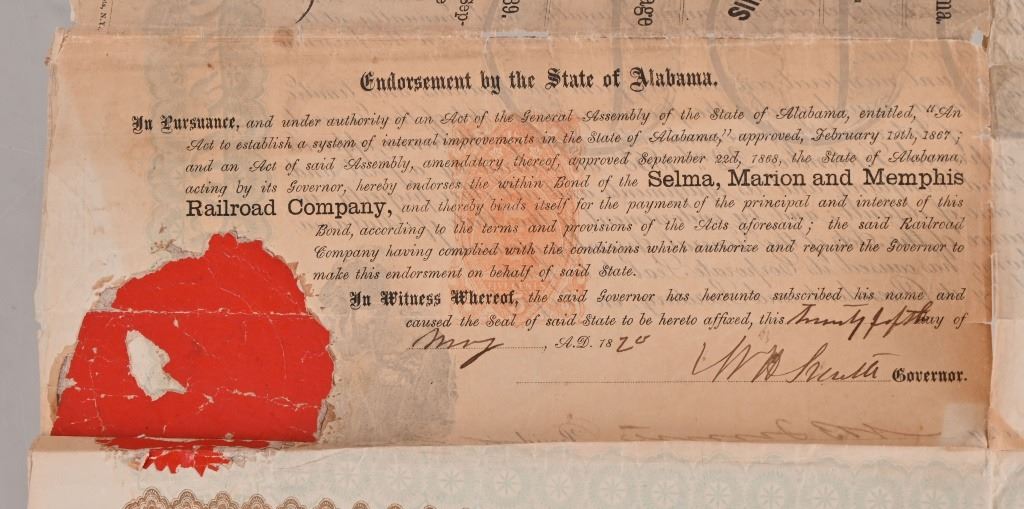 Endorsement by the State of Alabama.
In Pursuance, and under authority of an Act of the General Assembly of the State of Alabama, entitled, "An
Act to establish a system of internal improvements in the State of Alabama," approved, February 19th, 1867;
and an Act of said Assembly, amendatory thereof, approved September 22d, 1868, the State of Alabama,
acting by its Governor, hereby endorses the within Bond of the Selma, Marion and Memphis
Railroad Company, and thereby binds itself for the payment of the principal and interest of this
Bond, according to the terms and provisions of the Acts aforesaid; the said Railroad
Company having complied with the conditions which authorize and require the Governor to
make this endorsment on behalf of said State.
In Witness Whereof, the said Governor has hereunto subscribed his name and
caused the Seal of said State to be hereto affixed, this twenty fifth day of
May, A.D. 1870
W H Smith Governor.